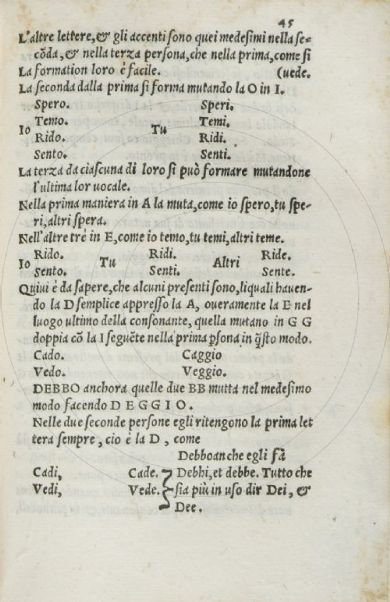 45
L'altre lettere, & gli accenti sono quei medesimi nella se-
cōda, & nella terza persona, che nella prima, come si
La formation loro è facile. (uede.
La seconda dalla prima si forma mutando la O in I.
Spero. Speri.
Temo. Temi.
Io Tu
Rido. Ridi.
Sento. Senti.
La terza da ciascuna di loro si può formare mutandone
l'ultima lor uocale.
Nella prima maniera in A la muta, come io spero, tu spe-
ri, altri spera.
Nell'altre trè in E, come io temo, tu temi, altri teme.
Rido. Ridi. Ride.
Io Tu Altri
Sento. Senti. Sente.
Quiui è da sapere, che alcuni presenti sono, liquali hauen-
do la D semplice appresso la A, oueramente la E nel
luogo ultimo della consonante, quella mutano in G G
doppia cō la I seguēte nella prima psona in q̄sto modo.
Cado. Caggio
Vedo. Veggio.
DEBBO anchora quelle due BB mutta nel medesimo
modo facendo D E G G I O.
Nelle due seconde persone egli ritengono la prima let
tera sempre, cio è la D, come
Debbo anche egli fà
Cadi, Cade. Debhi, et debbe. Tutto che
Vedi, Vede. sia più in uso dir Dei, &
Dee.